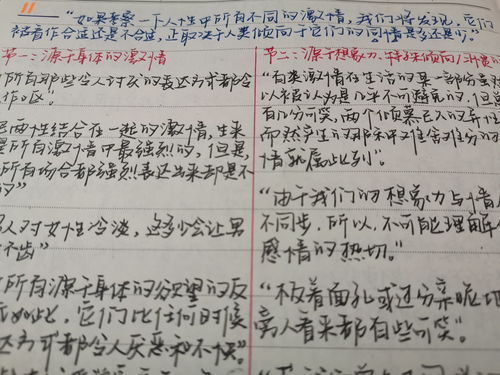 "如果考察一下人性中所有不同的激情,我们将发现,它们
被看作合适还是不合适,正取决于人类倾向于它们的同情是多还是少。"
第一:源于身体的激情
所有那些令人讨厌的表达方式都令
作呕"。
两性结合在一起的激情,生来
所有激情中最强烈的,但是,
所有场合都强烈表达出来都是不
的"
人对女性冷淡,这多少会让男
不齿"
所有源于身体的欲望的反
如此,它们比任何时候
达方式都令人厌恶和不快。"
第二:源于想象力、特殊倾向/习惯的
激情在生活的某一部分虽然
以被认为是几乎不可避免的,但总
有几分可笑,两个倾慕已久的异性
而自然产生的那种难舍难分的
情就属此列"。
"由于我们的想象力与情人
不同步,所以,不可能理解他
感情的热切。"
"板着面孔或过分亲昵
旁人看来都有些可笑"。